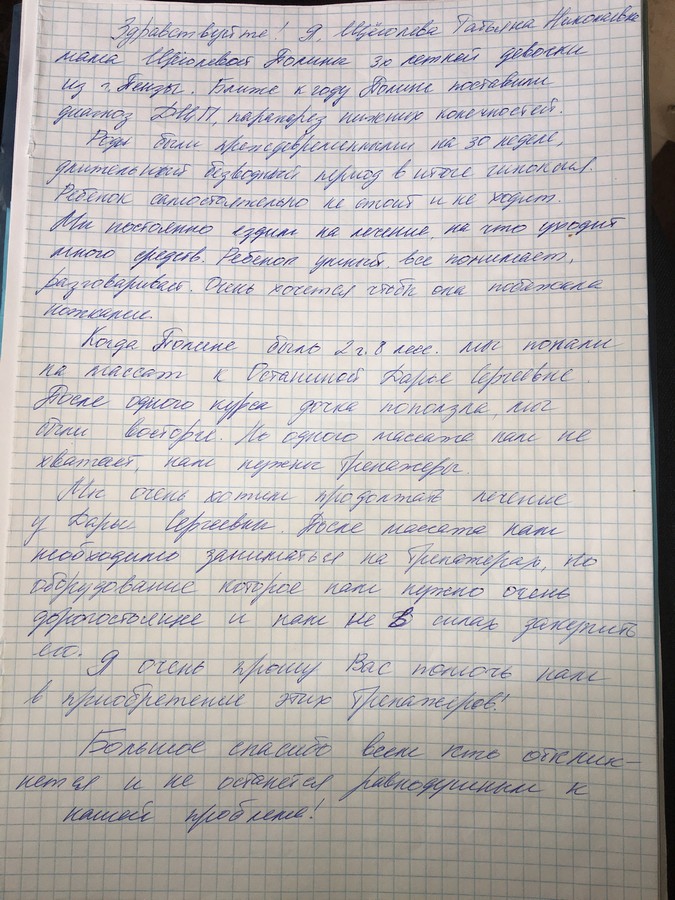 Здравствуйте! Я, Щёголева Татьяна Николаевна
мама Щёголевой Полины 3х летней девочки
из г. Пензы. Ближе к году Полине поставили
диагноз ДЦП, парапарез нижних конечностей.
Роды были преждевременными на 30 неделе,
длительный безводный период в итоге гипоксия.
Ребёнок самостоятельно не стоит и не ходит.
Мы постоянно ездим на лечение, на что уходит
много средств. Ребёнок умный, все понимает,
разговаривает. Очень хочется чтобы она побежала
ножками.
Когда Полине было 2 г. 8 мес. мы попали
на массаж к Останиной Дарье Сергеевне.
После одного курса дочка поползла, мы
были восторге. Но одного массажа нам не
хватает, нам нужны тренажеры.
Мы очень хотим продолжать лечение
у Дарьи Сергеевны. После массажа нам
необходимо заниматься на тренажерах, но
оборудование которое нам нужно очень
дорогостоящее и нам не в силах закупить
его.
Я очень прошу Вас помочь нам
в приобретение этих тренажеров!
Большое спасибо всем кто отклик-
нется и не останется равнодушным к
нашей проблеме!